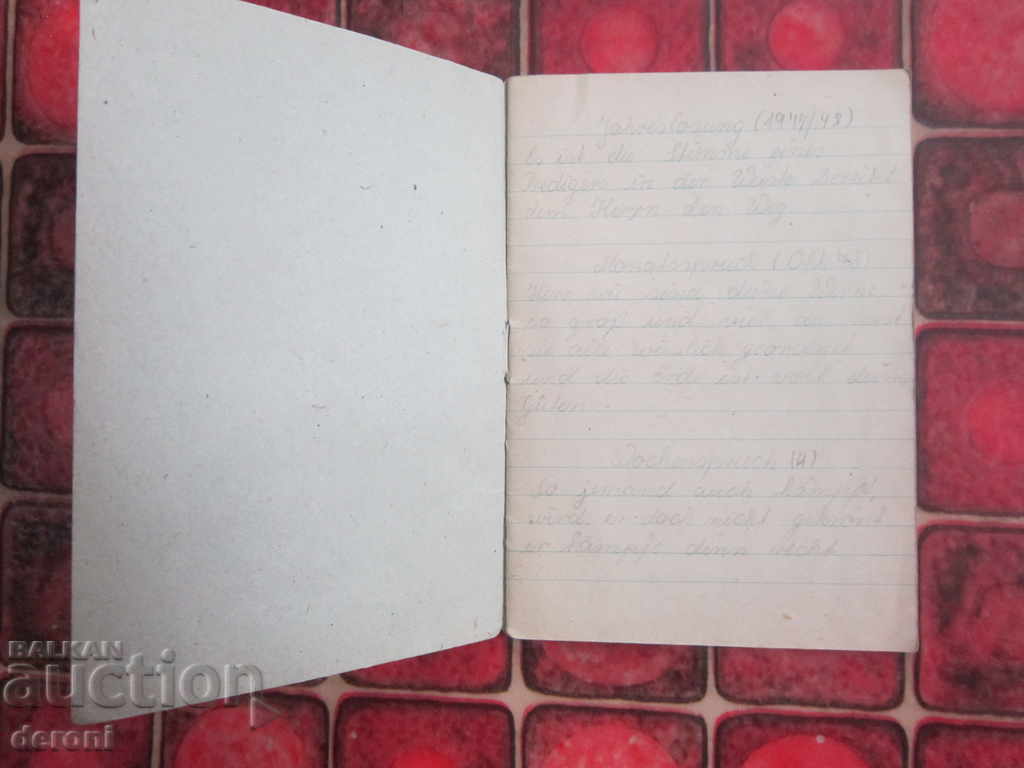 Jahreslosung (1942/43)
Es ist die Stimme eines
Predigers in der Wüste Bereitet
dem Herrn den Weg
Monatsspruch (Okt. 43)
Herr wie sind deine Werke
so groß und viel du hast
sie alle weislich geordnet
und die Erde ist voll deiner
Güter.
Wochenspruch (4)
So jemand auch kämpft,
wird er doch nicht gekrönt
er kämpfe denn recht
BALKAN
auction
deroni